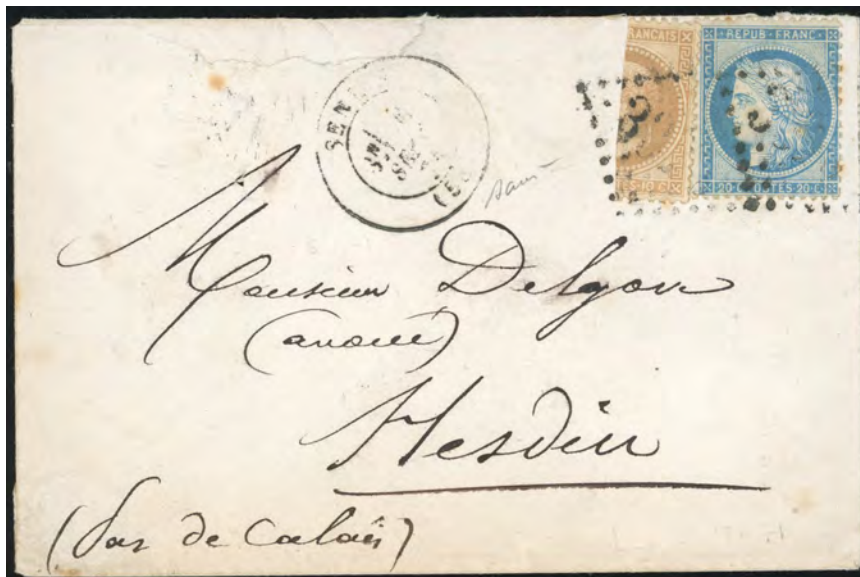 RANÇAIS
· REPUB · FRANC ·
TES·10·C
20·C·POSTES·20·C
Monsieur Delgove
(avoué)
Hesdin
(Pas de Calais)